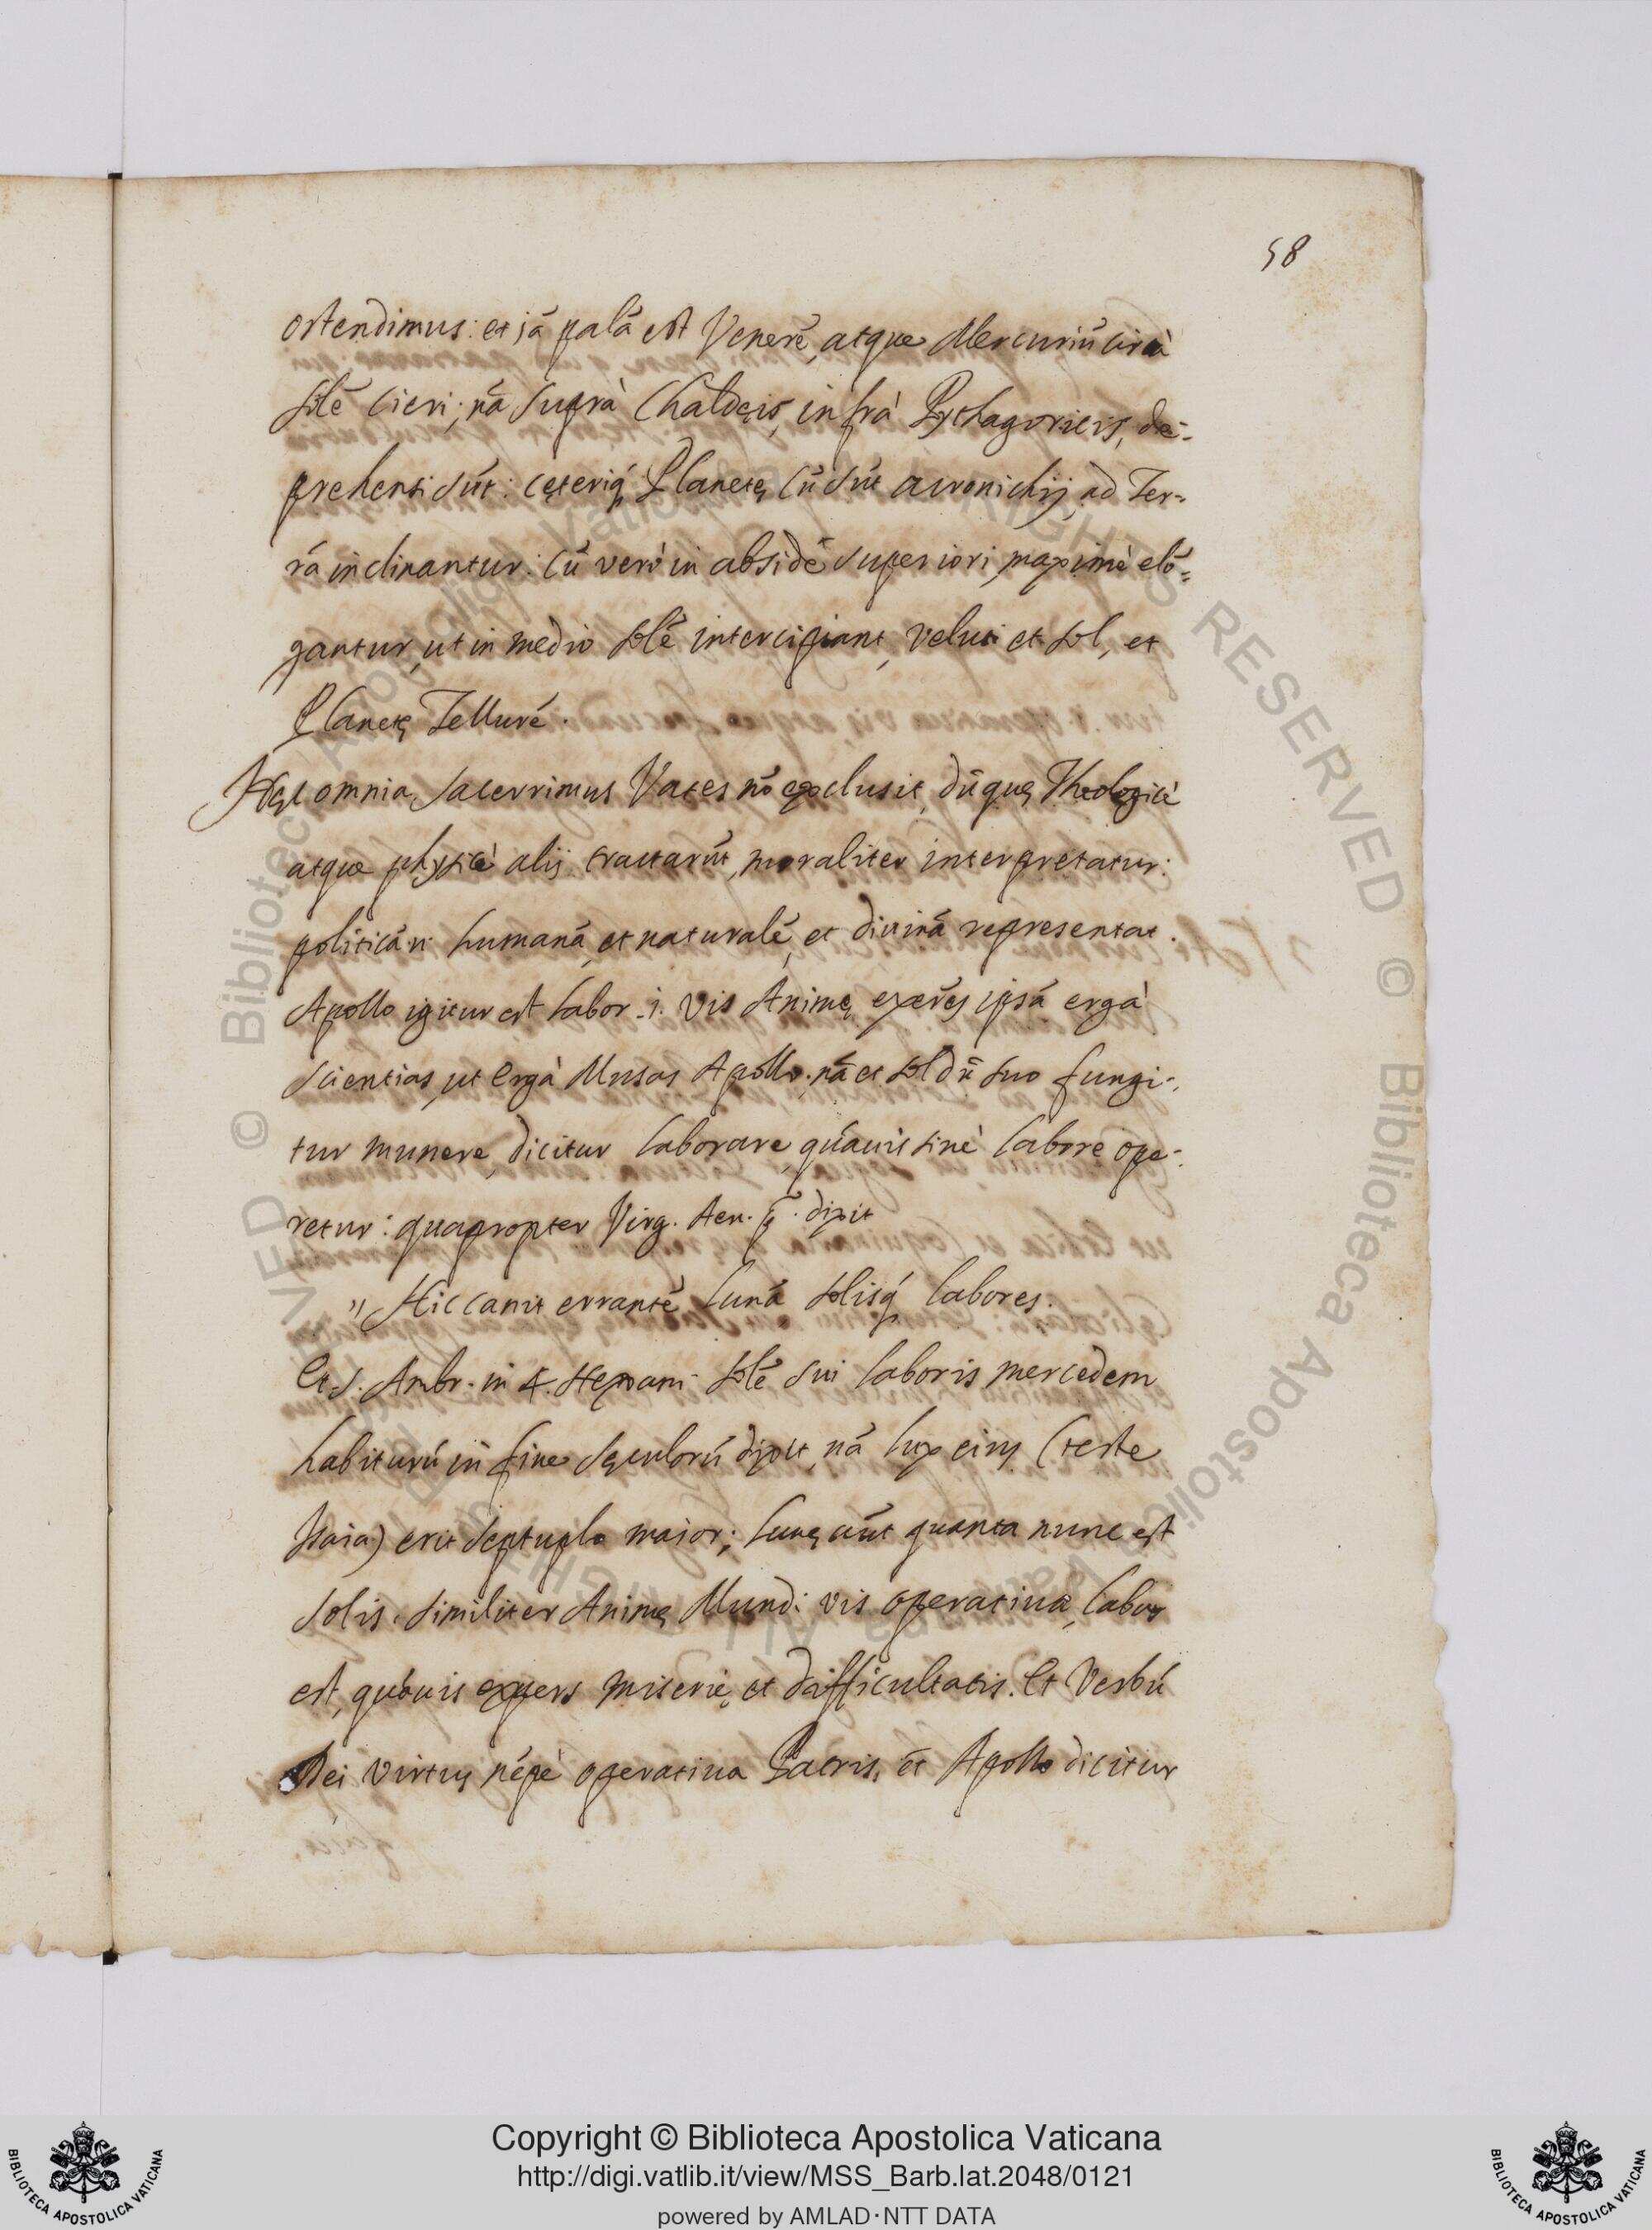 58
ostendimus: et iā palā est Venerē, atque Mercuriū circà
Solē cieri; nā suprà Chaldęis, infrà Pythagoricis, de-
prehensi sūt: cęteriq́ Planetę cū sūt acronichij ad Ter=
rā inclinantur: cū verò in absidē superiori maximè elō=
gantur, ut in medio Solē intercipiant, veluti et Sol, et
Planetę Tellurē.
Hęc omnia Sacerrimus Vates nō exclusit, dū quę Theologicè
atque physicè alij tractarūt, moraliter interpretatur:
politicā n. humanā, et naturalē, et diuinā representat.
Apollo igitur est labor .i. vis Animę exerēs ipsā ergà
scientias, ut ergà Musas Apollo. nā et Sol dū suo fungi-
tur munere, dicitur laborare, quāuis sinè labore ope-
retur: quapropter Virg. Aen. p.º dixit
" Hic canit errantē lunā Solisq́ labores.
Et S. Ambr. in 4. Hexam. Solē sui laboris mercedem
habiturū in fine sęculorū dixit, nā lux eius (teste
Isaia) erit septuplo maior; lunę aūt quanta nunc est
Solis. Similiter Animę Mundi vis operatiua, labor
est, quāuis expers miserię, et difficultatis. Et Verbū
Dei virtus nēpè operatiua Patris, ēt Apollo dicitur
© Biblioteca Apostolica Vaticana ALL RIGHTS RESERVED
Copyright © Biblioteca Apostolica Vaticana
http://digi.vatlib.it/view/MSS_Barb.lat.2048/0121
powered by AMLAD·NTT DATA
BIBLIOTECA APOSTOLICA VATICANA
BIBLIOTECA APOSTOLICA VATICANA